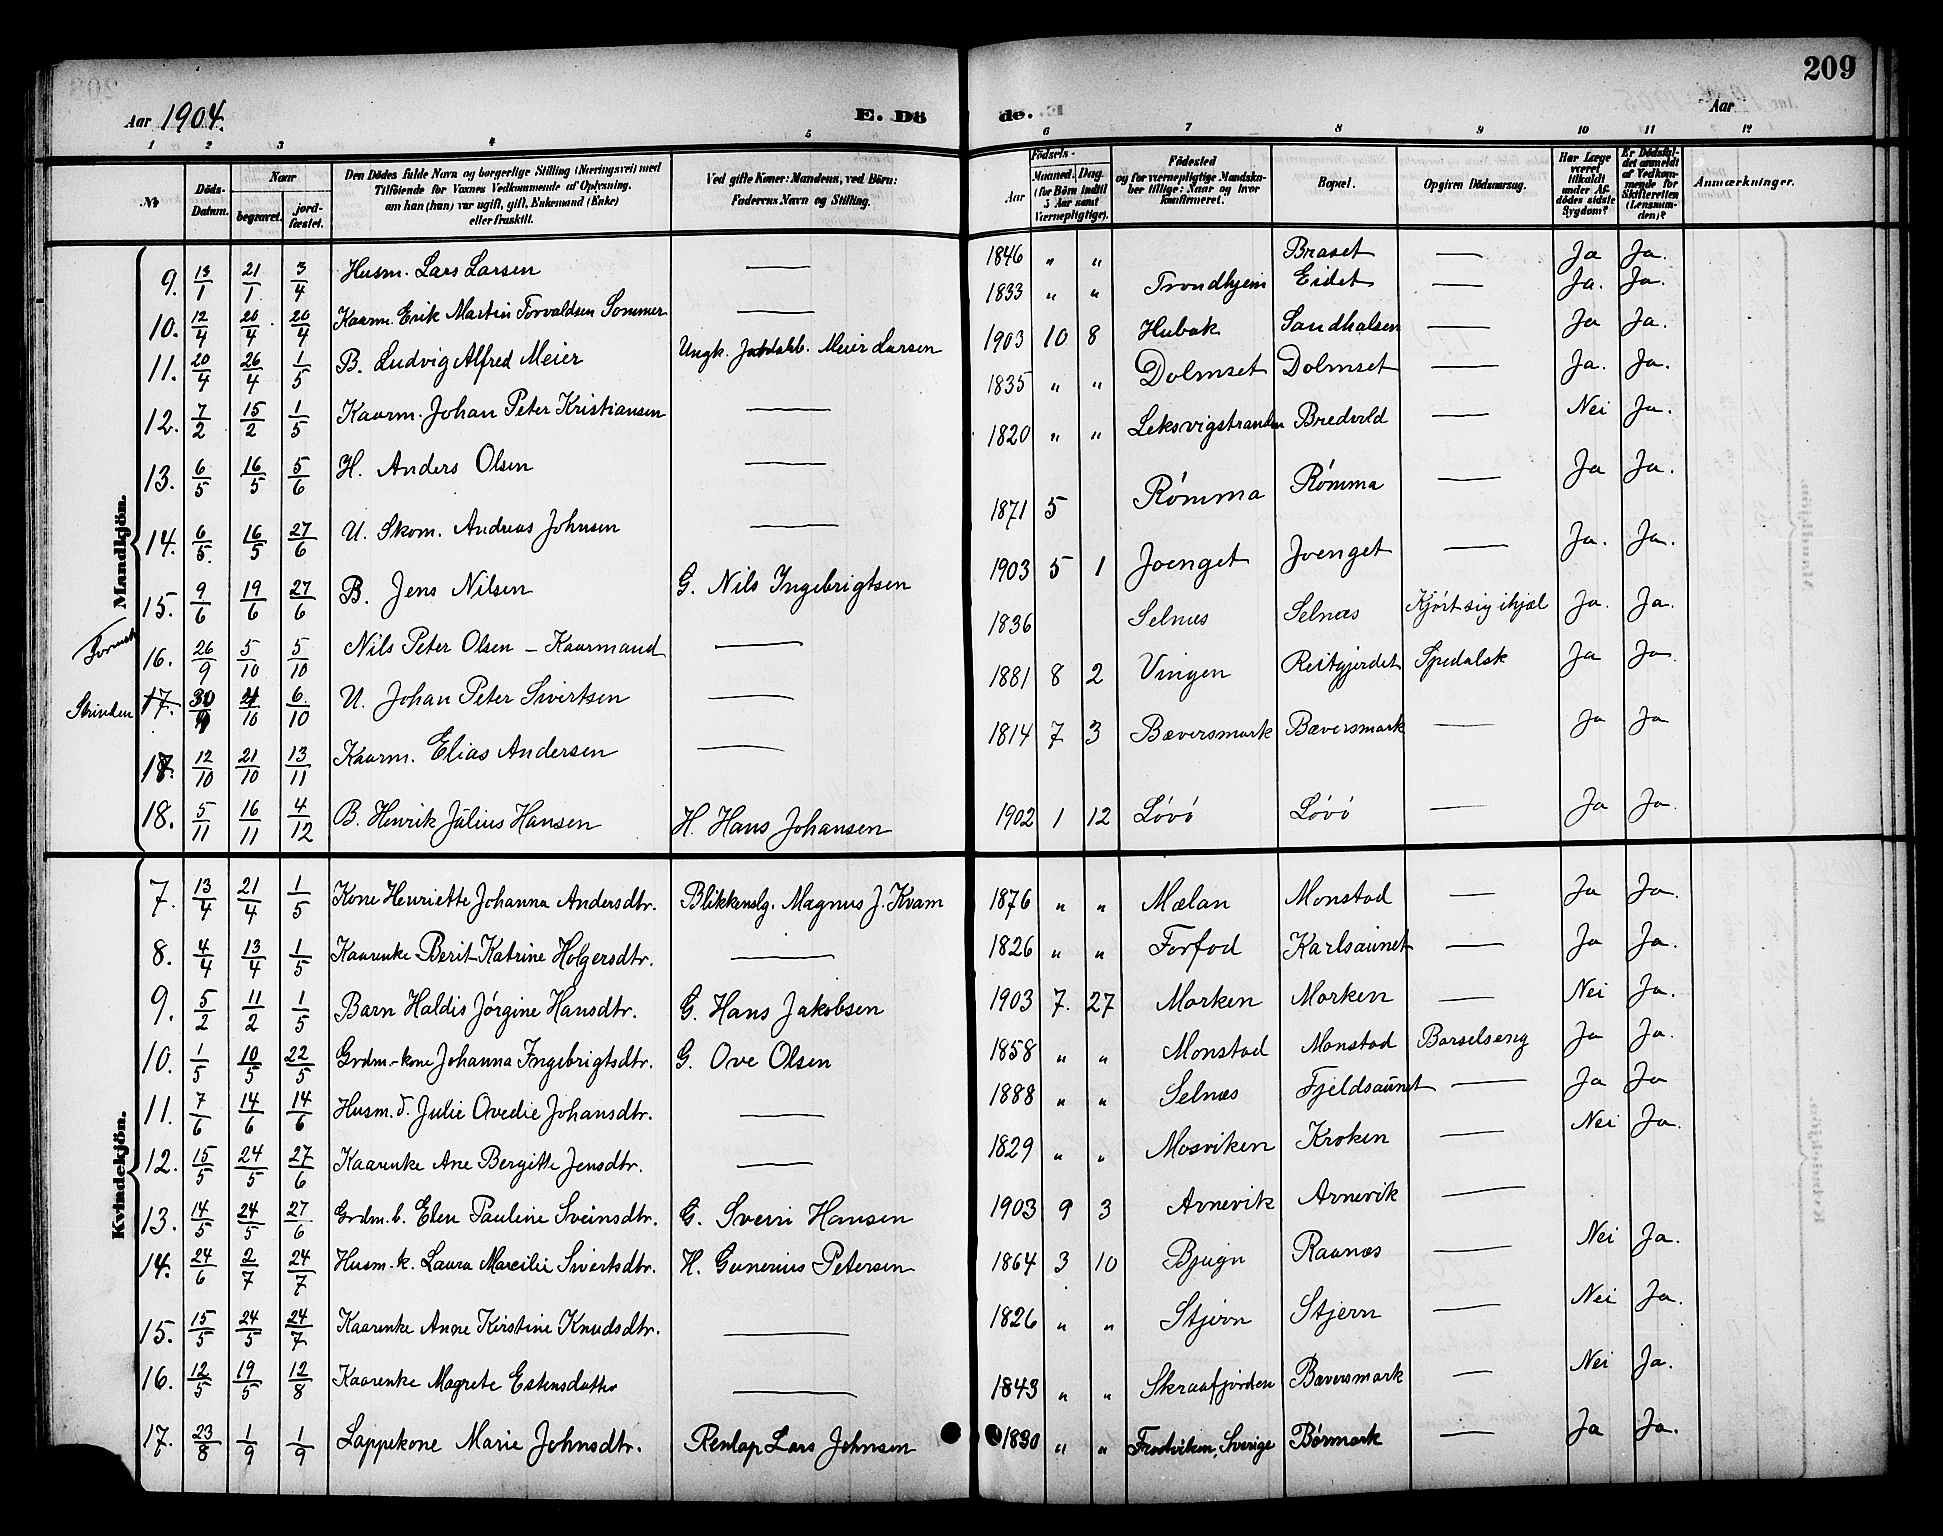 209
Aar 1904.
E. Dö
de.
Aar
1 2 3 4 5 6 7 8 9 10 11 12
No
Döds-Datum.
Naar
begravet.
jord-fæstet.
Den Dödes fulde Navn og borgerlige Stilling (Næringsvei) med
Tilföiende for Voxnes Vedkommende af Oplysning,
om han (hun) var ugift, gift, Enkemand (Enke)
eller fraskilt.
Ved gifte Koner: Mandens, ved Börn:
Faderens Navn og Stilling.
Födsels-
Aar
Maaned. Dag.
(for Börn indtil 5 Aar samt Værnepligtige).
Födested
og for værnepligtige Mandskaber tillige: Naar og hvor konfirmeret.
Bopæl.
Opgiven Dödsaarsag.
Har Læge været tilkaldt under Afdödes sidste Sygdom?
Er Dödsfaldet anmeldt af Vedkommende for Skifteretten (Lensmanden)?
Anmærkninger.
Mandkjön.
9. 13/1 21/1 3/4 Husm. Lars Larsen — 1846 " " Braset — Ja Ja.
10. 12/4 20/4 20/4 Kaarm. Erik Martin Torvaldsen Sommer — 1833 " " Trondhjem Eidet — Ja. Ja.
11. 20/4 26/4 1/5 B. Ludvig Alfred Meier Ungk. Meier Larsen 1903 10 8 Hubak Sandhalsen — Ja Ja.
12. 7/2 15/2 1/5 Kaarm. Johan Peter Kristiansen — 1835 " " Dolmset Dolmset — Ja. Ja.
13. 6/5 16/5 5/6 H. Anders Olsen — 1820 " " Leksvigstranden Bredvold — Nei Ja.
14. 6/5. 16/5 27/6 U. Skom. Andreas Johnsen — 1871 5 Rómma Rómma — Ja Ja.
15. 9/6 19/6 27/6 B. Jens Nilsen G. Nils Ingebrigtsen 1903 5 1 Joenget Joenget — Ja. Ja.
16. 26/9 5/10 5/10 Nils Peter Olsen – Kaarmand — 1836 Selnæs Selnæs Kjórt sig ihjæl Ja. Ja.
Strinden 17. 30/9 4/10 6/10 U. Johan Peter Sivertsen — 1881 8 2 Vingen Reitgjerdet Spedalsk Ja Ja.
17. 12/10 21/10 13/11 Kaarm. Elias Andersen — 1814 7 3 Bæversmark Bæversmark — Ja Ja
18. 5/11 16/11 4/12 B. Henrik Július Hansen H. Hans Johansen 1902 1 12 Lóvó Lóvó — Ja Ja.
Kvindekjön.
7. 13/4 21/4 1/5 Kone Henriette Johanna Andersdtr. Blikkenslg. Magnus J. Kvam 1876 " " Mælan Monstad — Ja Ja.
8. 4/4 13/4 1/5 Kaarenke Berit Katrine Holgersdtr. — 1826 " " Forfod Karlsaúnet — Ja Ja.
9. 5/2 11/2 1/5 Barn Haldis Jórgine Hansdtr. G. Hans Jakobsen 1903 7. 27 Morken Morken — Nei Ja.
10. 1/5 10/5 22/5 Grdm.-kone Johanna Ingebrigtsdtr. G. Ove Olsen 1858 " " Monstad Monstad Barselseng Ja Ja.
11. 7/6 14/6 14/6 Husm. d. Julie Ovedie Johansdtr. — 1888 " " Selnæs Fjeldsaúnet — Ja Ja
12. 15/5 24/5 27/6 Kaarenke Ane Bergitte Jensdtr. — 1829 " " Mosviken Kroken — Nei Ja.
13. 14/5 24/5 27/6 Grdm. b. Elen Pauline Sveinsdtr. G. Svein Hansen 1903 9 3 Arnevik Arnevik —
14. 24/6 2/7 24/7 Husm. k. Laura Marcilie Sivertsdtr. H. Gunerius Petersen 1864 3 10 Bjugn Raanæs — Nei Ja.
15. 15/5 24/5 24/7 Kaarenke Anne Kirstine Knudsdtr. — 1826 " " Stjern Stjern — Nei Ja.
16. 12/5 19/5 12/8 Kaarenke Magrete Estensdatter — 1843 " " Skraafjorden Bæversmark — Nei Ja.
17. 23/8 1/9 1/9 Lappekone Marie Johnsdtr. Renlap Lars Johnsen 1830 " " Frostviken, Sverige Bórmark — Ja Ja.